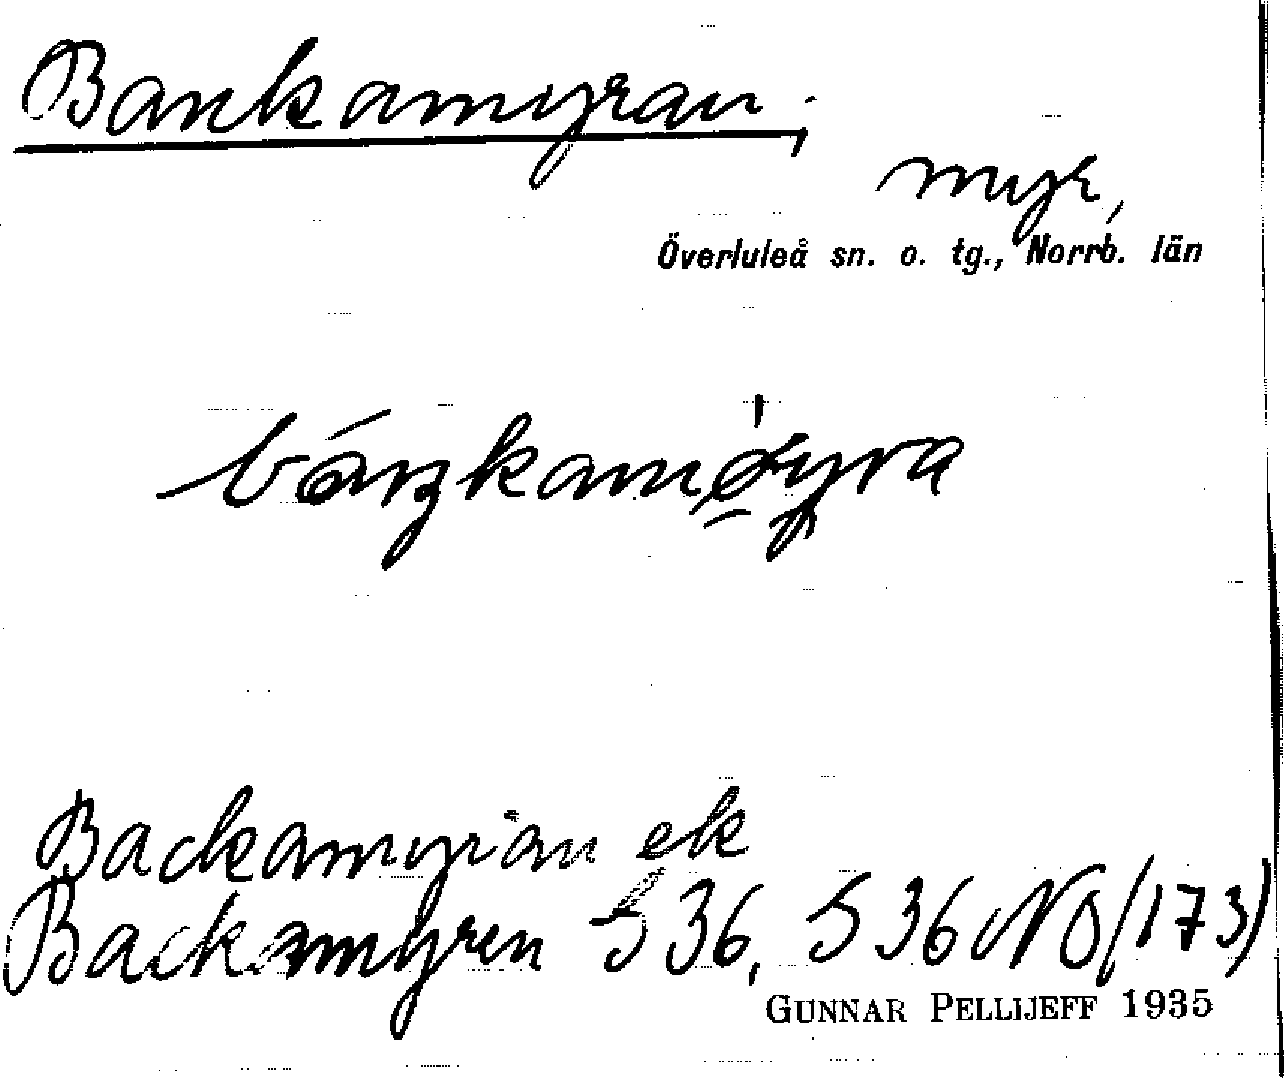 Bankamyran,
myr,
Överluleå sn. o. tg., Norrb. län
Backamyran ek
Backamyren S 36, S 36 NO (173)
GUNNAR PELLIJEFF 1935